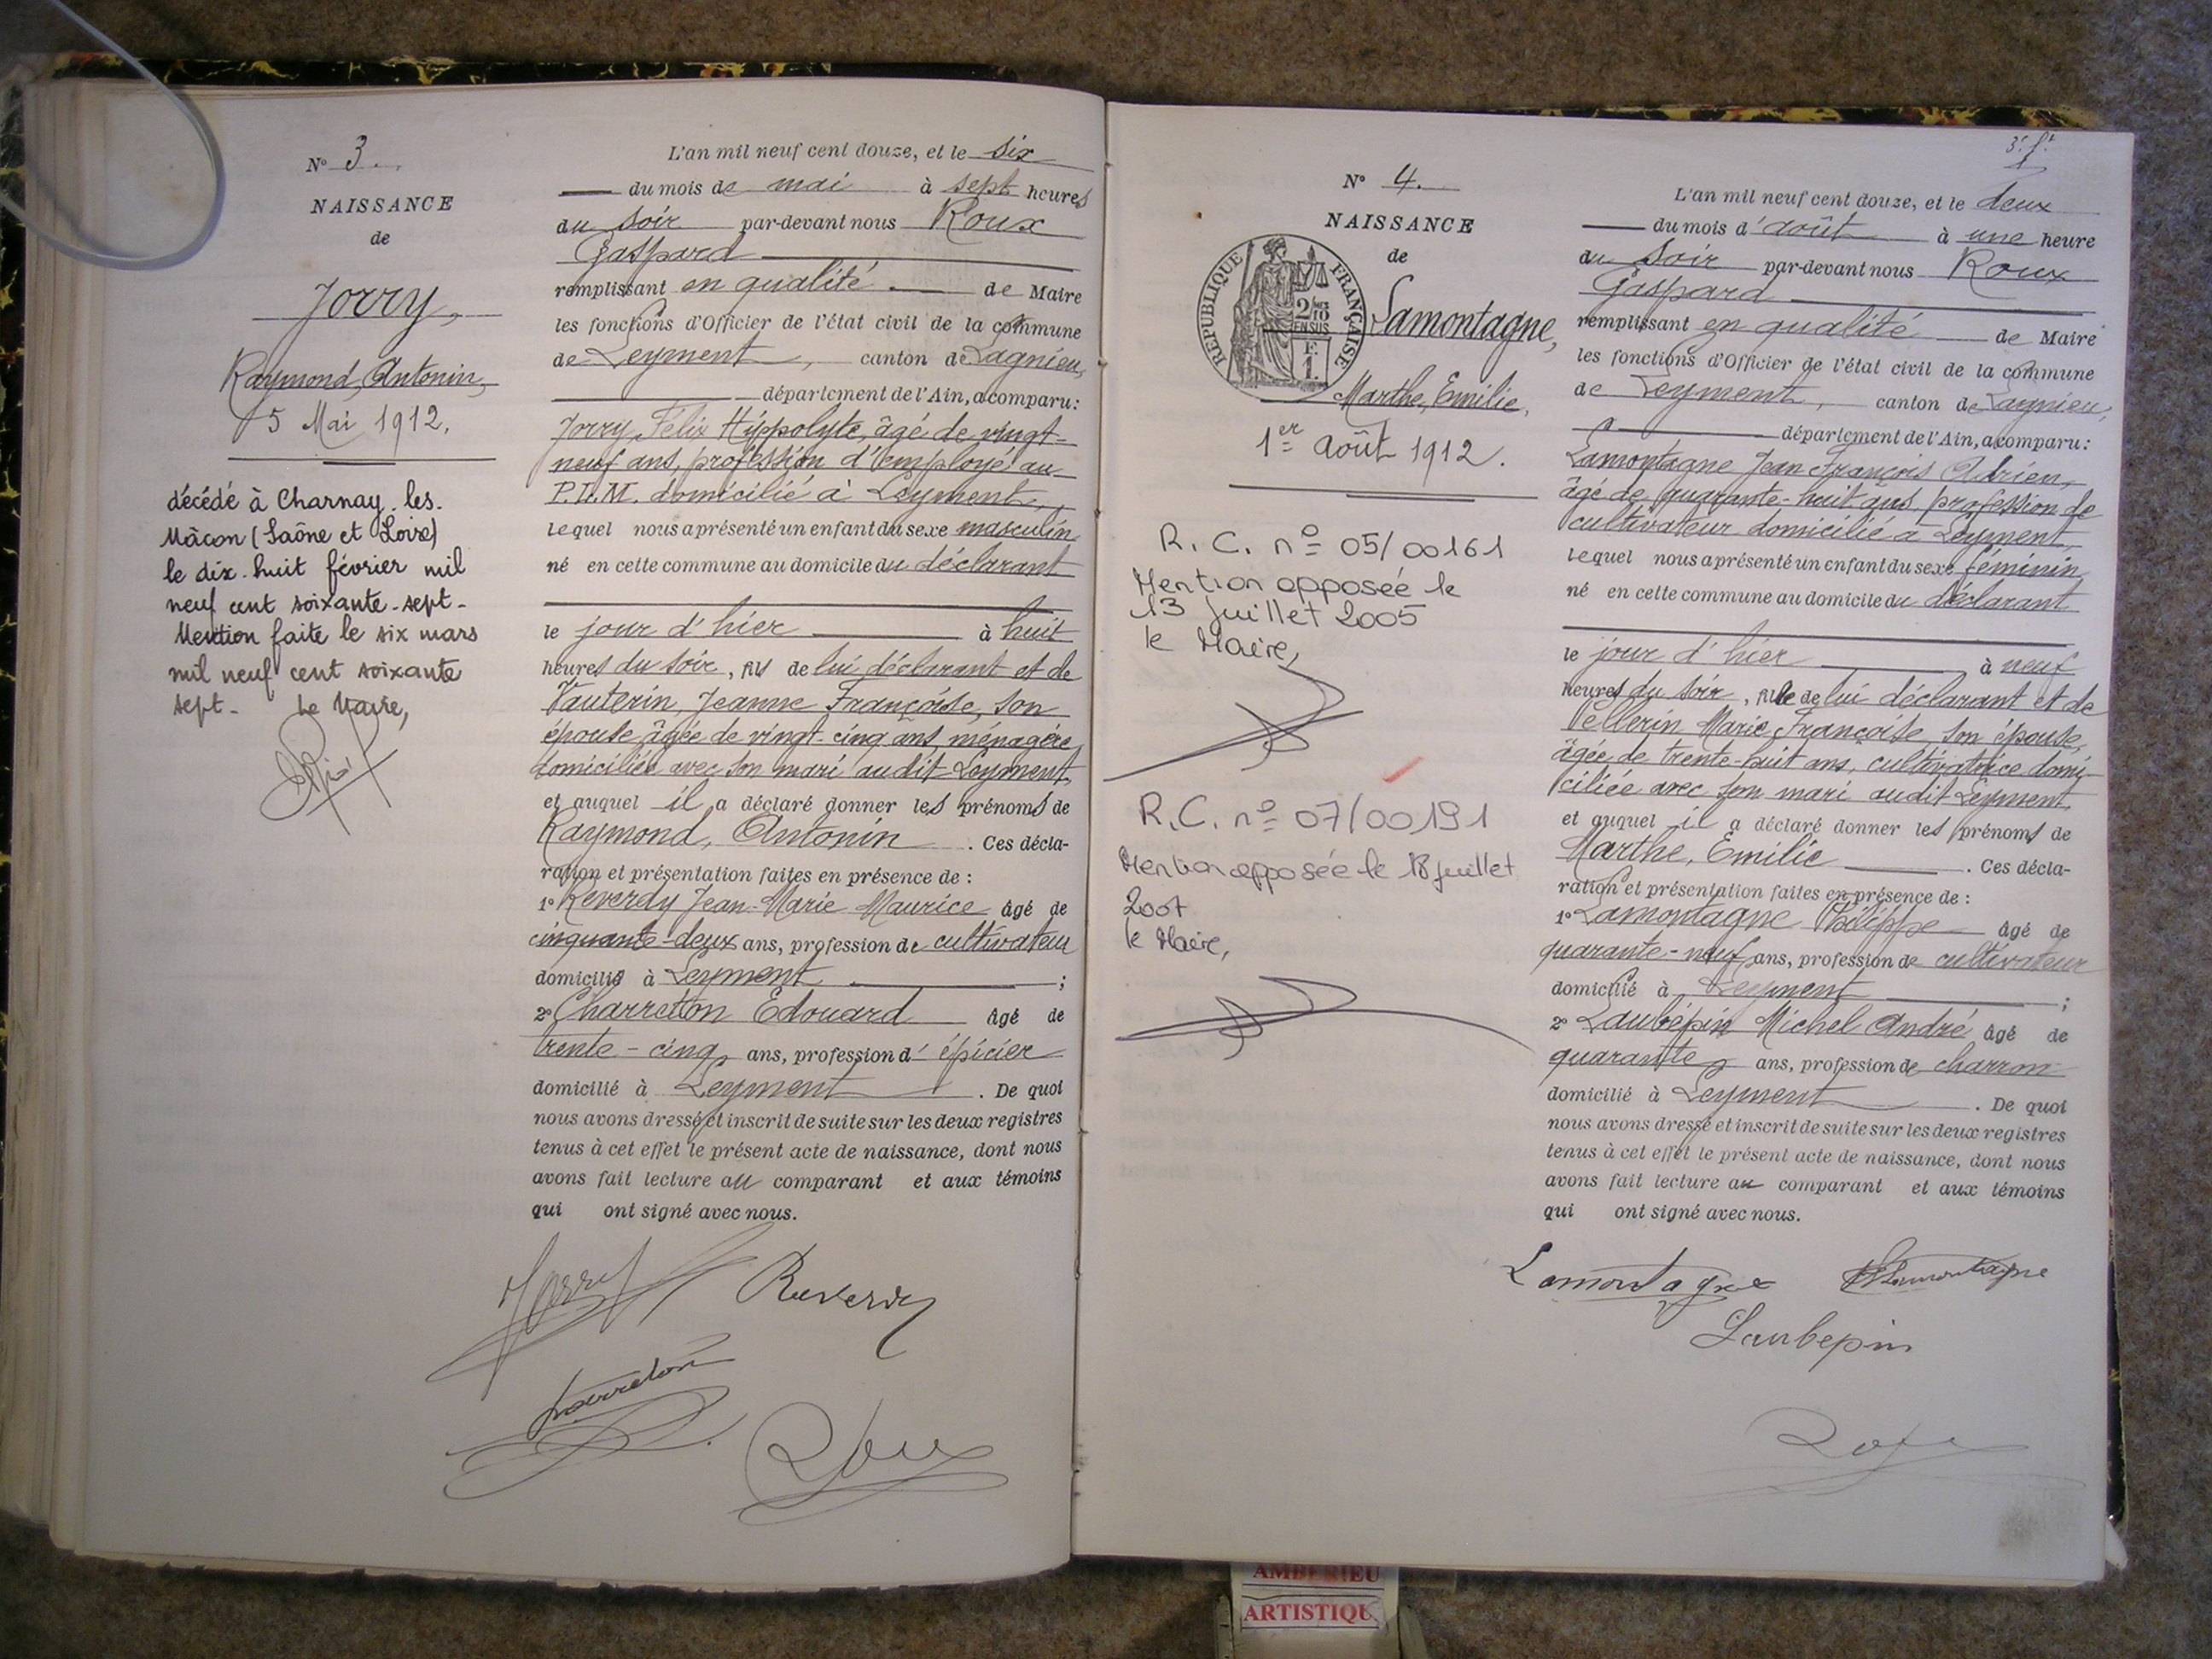 N° 3.
NAISSANCE
de
Jorry,
Raymond, Antonin,
5 Mai 1912.
décédé à Charnay-les-
Mâcon (Saône et Loire)
le dix-huit février mil
neuf cent soixante-sept-
Mention faite le six mars
mil neuf cent soixante
sept- Le Maire,
L'an mil neuf cent douze, et le six
du mois de mai à sept heures
du soir par-devant nous Roux
Gaspard
remplissant en qualité de Maire
les fonctions d'Officier de l'état civil de la commune
de Leyment, canton de Lagnieu,
département de l'Ain, a comparu:
Jorry Félix Hippolyte, âgé de vingt-
neuf ans, profession d'employé au
P.L.M. domicilié à Leyment,
lequel nous a présenté un enfant du sexe masculin
né en cette commune au domicile du déclarant
le jour d'hier à huit
heures du soir, fils de lui déclarant et de
Vauterin, Jeanne Françoise, son
épouse âgée de vingt-cinq ans, ménagère
domiciliée avec son mari audit Leyment,
et auquel il a déclaré donner les prénoms de
Raymond, Antonin. Ces décla-
ration et présentation faites en présence de :
1° Reverdy Jean-Marie Maurice âgé de
cinquante-deux ans, profession de cultivateur
domicilié à Leyment ;
2° Charretton Edouard âgé de
trente-cinq ans, profession d'épicier
domicilié à Leyment. De quoi
nous avons dressé et inscrit de suite sur les deux registres
tenus à cet effet le présent acte de naissance, dont nous
avons fait lecture au comparant et aux témoins
qui ont signé avec nous.
Jorry Reverdy
Charreton
Roux
3e ft
N° 4.
NAISSANCE
de
RÉPUBLIQUE FRANÇAISE
2/10
EN SUS
F.
1.
Lamontagne,
Marthe, Emilie,
1er août 1912.
R.C. n° 05/00161
Mention apposée le
13 juillet 2005
le Maire,
R.C. n° 07/00191
Mention apposée le 18 juillet
2007
le Maire,
L'an mil neuf cent douze, et le deux
du mois d'août à une heure
du soir par-devant nous Roux
Gaspard
remplissant en qualité de Maire
les fonctions d'Officier de l'état civil de la commune
de Leyment, canton de Lagnieu,
département de l'Ain, a comparu:
Lamontagne Jean François Adrien,
âgé de quarante-huit ans, profession de
cultivateur domicilié à Leyment,
lequel nous a présenté un enfant du sexe féminin
né en cette commune au domicile du déclarant
le jour d'hier à neuf
heures du soir, fille de lui déclarant et de
Pellerin Marie Françoise son épouse,
âgée de trente-huit ans, cultivatrice domi-
ciliée avec son mari audit Leyment,
et auquel il a déclaré donner les prénoms de
Marthe, Emilie. Ces décla-
ration et présentation faites en présence de :
1° Lamontagne Philippe âgé de
quarante-neuf ans, profession de cultivateur
domicilié à Leyment ;
2° Laubépin Michel André âgé de
quarante ans, profession de charron
domicilié à Leyment. De quoi
nous avons dressé et inscrit de suite sur les deux registres
tenus à cet effet le présent acte de naissance, dont nous
avons fait lecture au comparant et aux témoins
qui ont signé avec nous.
Lamontagne Lamontagne
Laubepin
Roux
AMBERIEU
ARTISTIQU